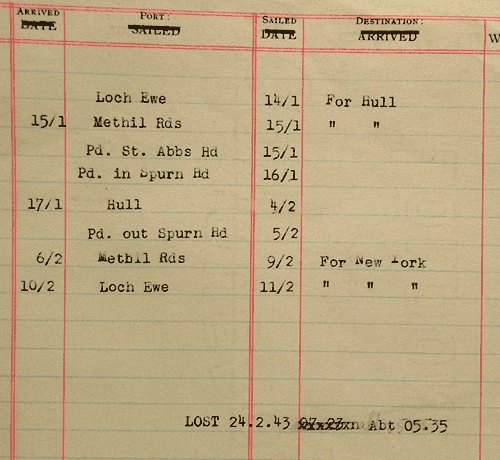 ARRIVED PORT: SAILED DESTINATION:
DATE SAILED DATE ARRIVED W
Loch Ewe 14/1 For Hull
15/1 Methil Rds 15/1 " "
Pd. St. Abbs Hd 15/1
Pd. in Spurn Hd 16/1
17/1 Hull 4/2
Pd. out Spurn Hd 5/2
6/2 Methil Rds 9/2 For New York
10/2 Loch Ewe 11/2 " " "
LOST 24.2.43 Abt 05.35